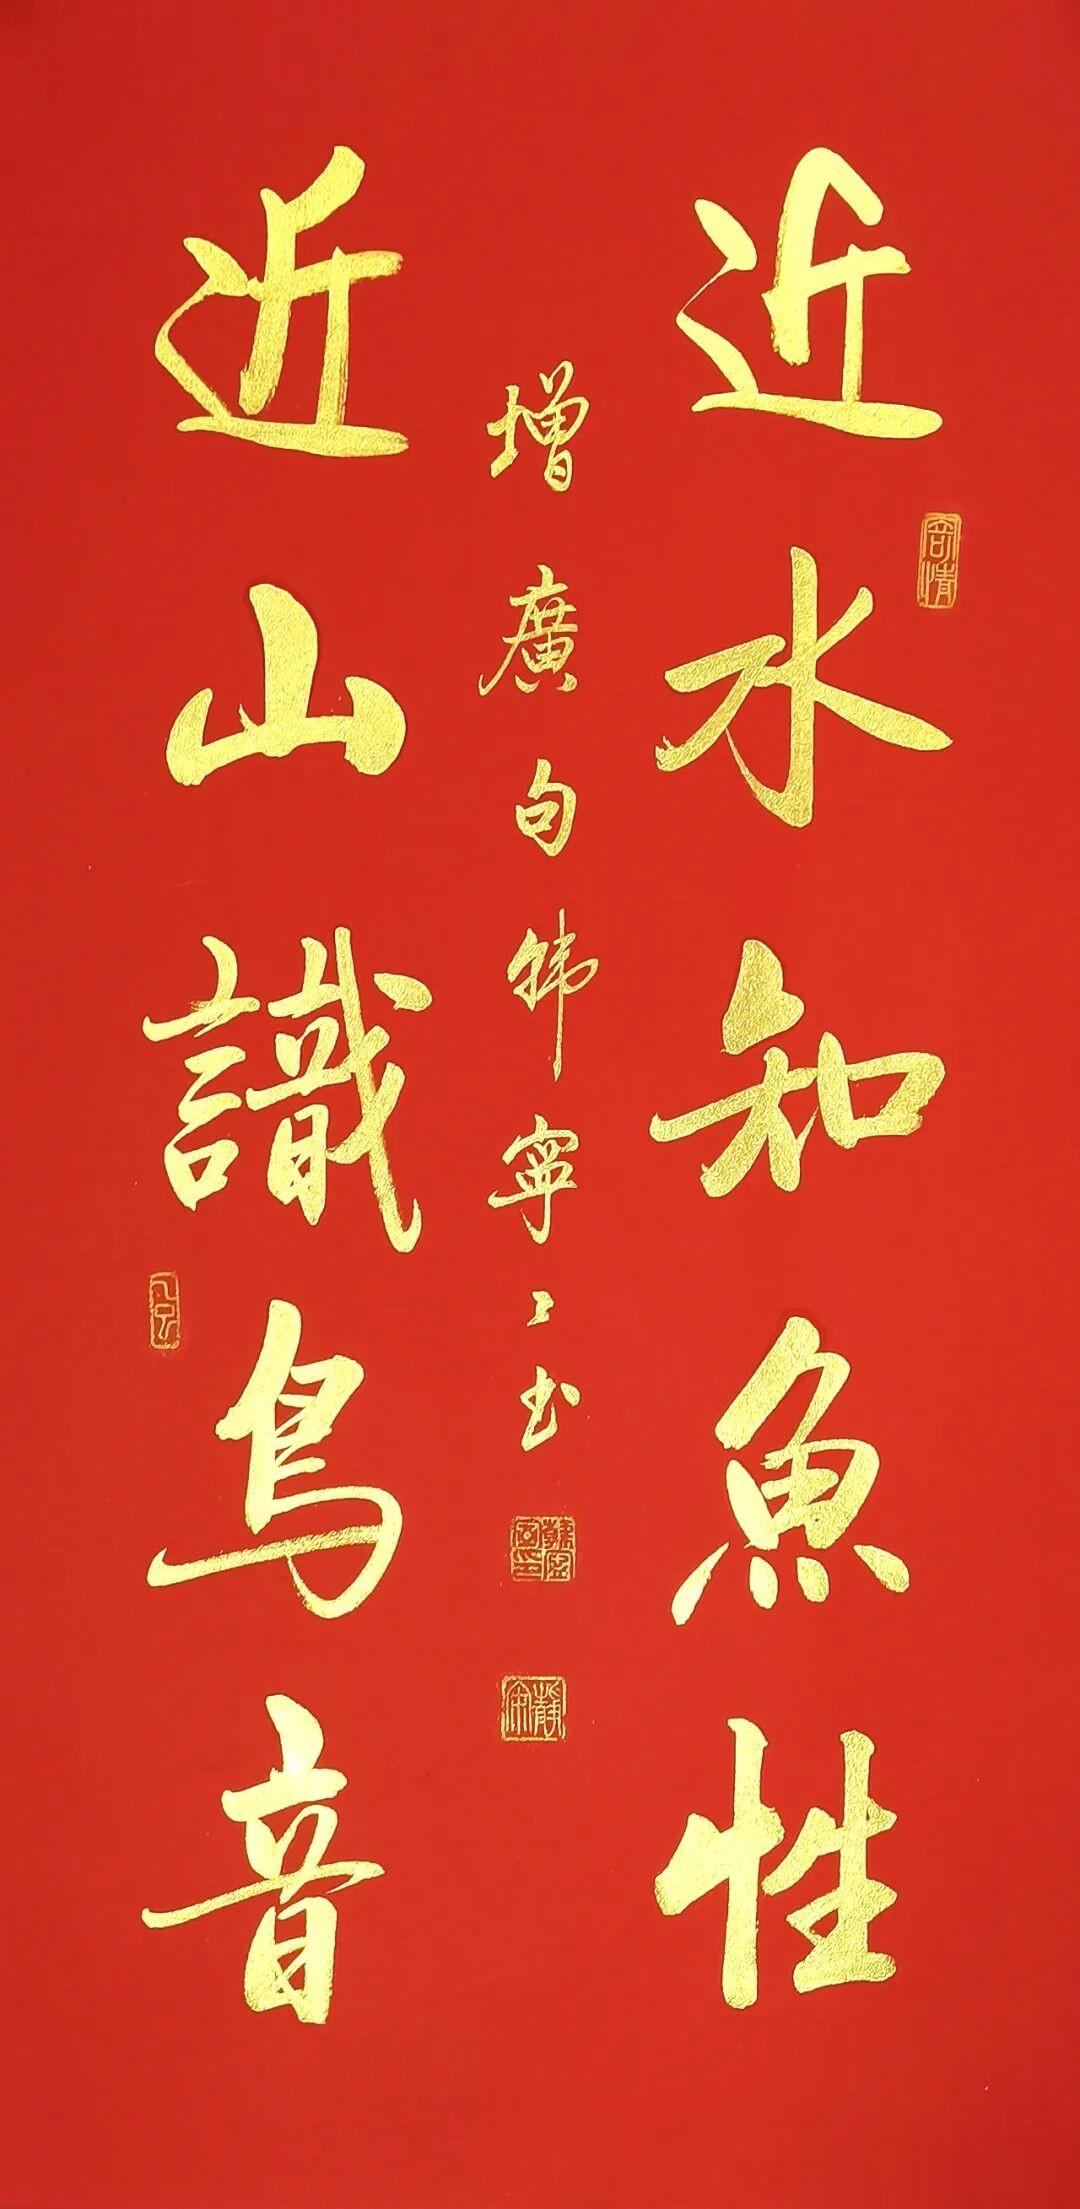 近水知魚性
增廣句韩寧寧书
近山識鳥音